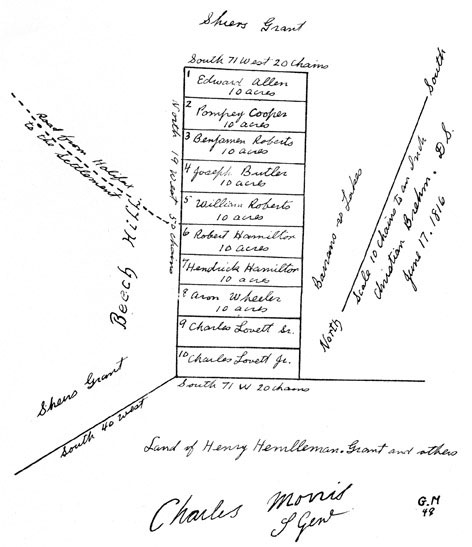 Shiers Grant
South 71 West 20 chains
1 Edward Allen
10 acres
2 Pompey Cooper
10 acres
3 Benjamen Roberts
10 acres
4 Joseph Butler
10 acres
5 William Roberts
10 acres
6 Robert Hamilton
10 acres
7 Hendrick Hamilton
10 acres
8 Aron Wheeler
10 acres
9 Charles Lovett Sr.
10 Charles Lovett Jr.
South 71 W 20 chains
North 19 West 50 chains
Road from Halifax
to the Settlement
Beech Hill
Shers Grant
South 40 West
Barrans & Lakes
North
South
Scale 10 Chains to an Inch
Christian Brehm. D.S.
June 17. 1816
Land of Henry Grant and others
Charles Morris
S Genl
G.M
48